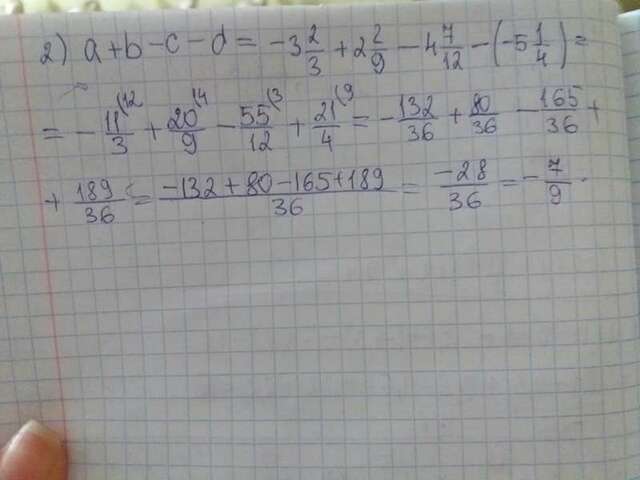 2) a+b-c-d = -3 2/3 + 2 2/9 - 4 7/12 - (-5 1/4) =
= - 11/3 (12 + 20/9 (4 - 55/12 (3 + 21/4 (9 = - 132/36 + 80/36 - 165/36 +
+ 189/36 = (-132+80-165+189)/36 = -28/36 = - 7/9 .